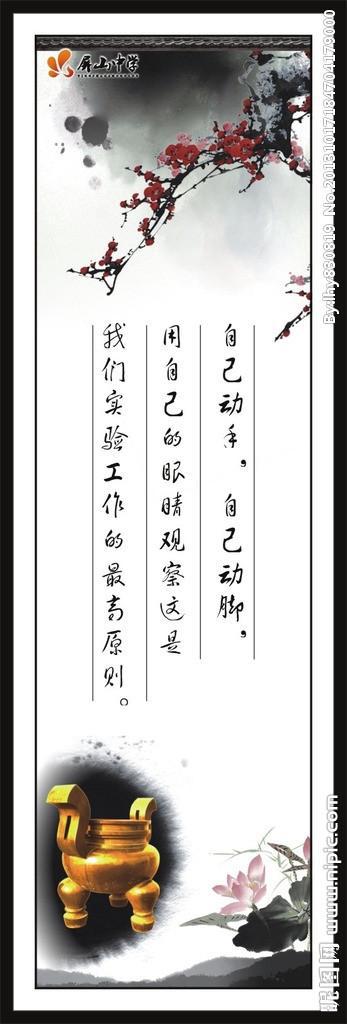 屏山中学
自己动手，自己动脚，
用自己的眼睛观察这是
我们实验工作的最高原则。
By:lhy830819 No.20131017184704179000
昵图网 www.nipic.com